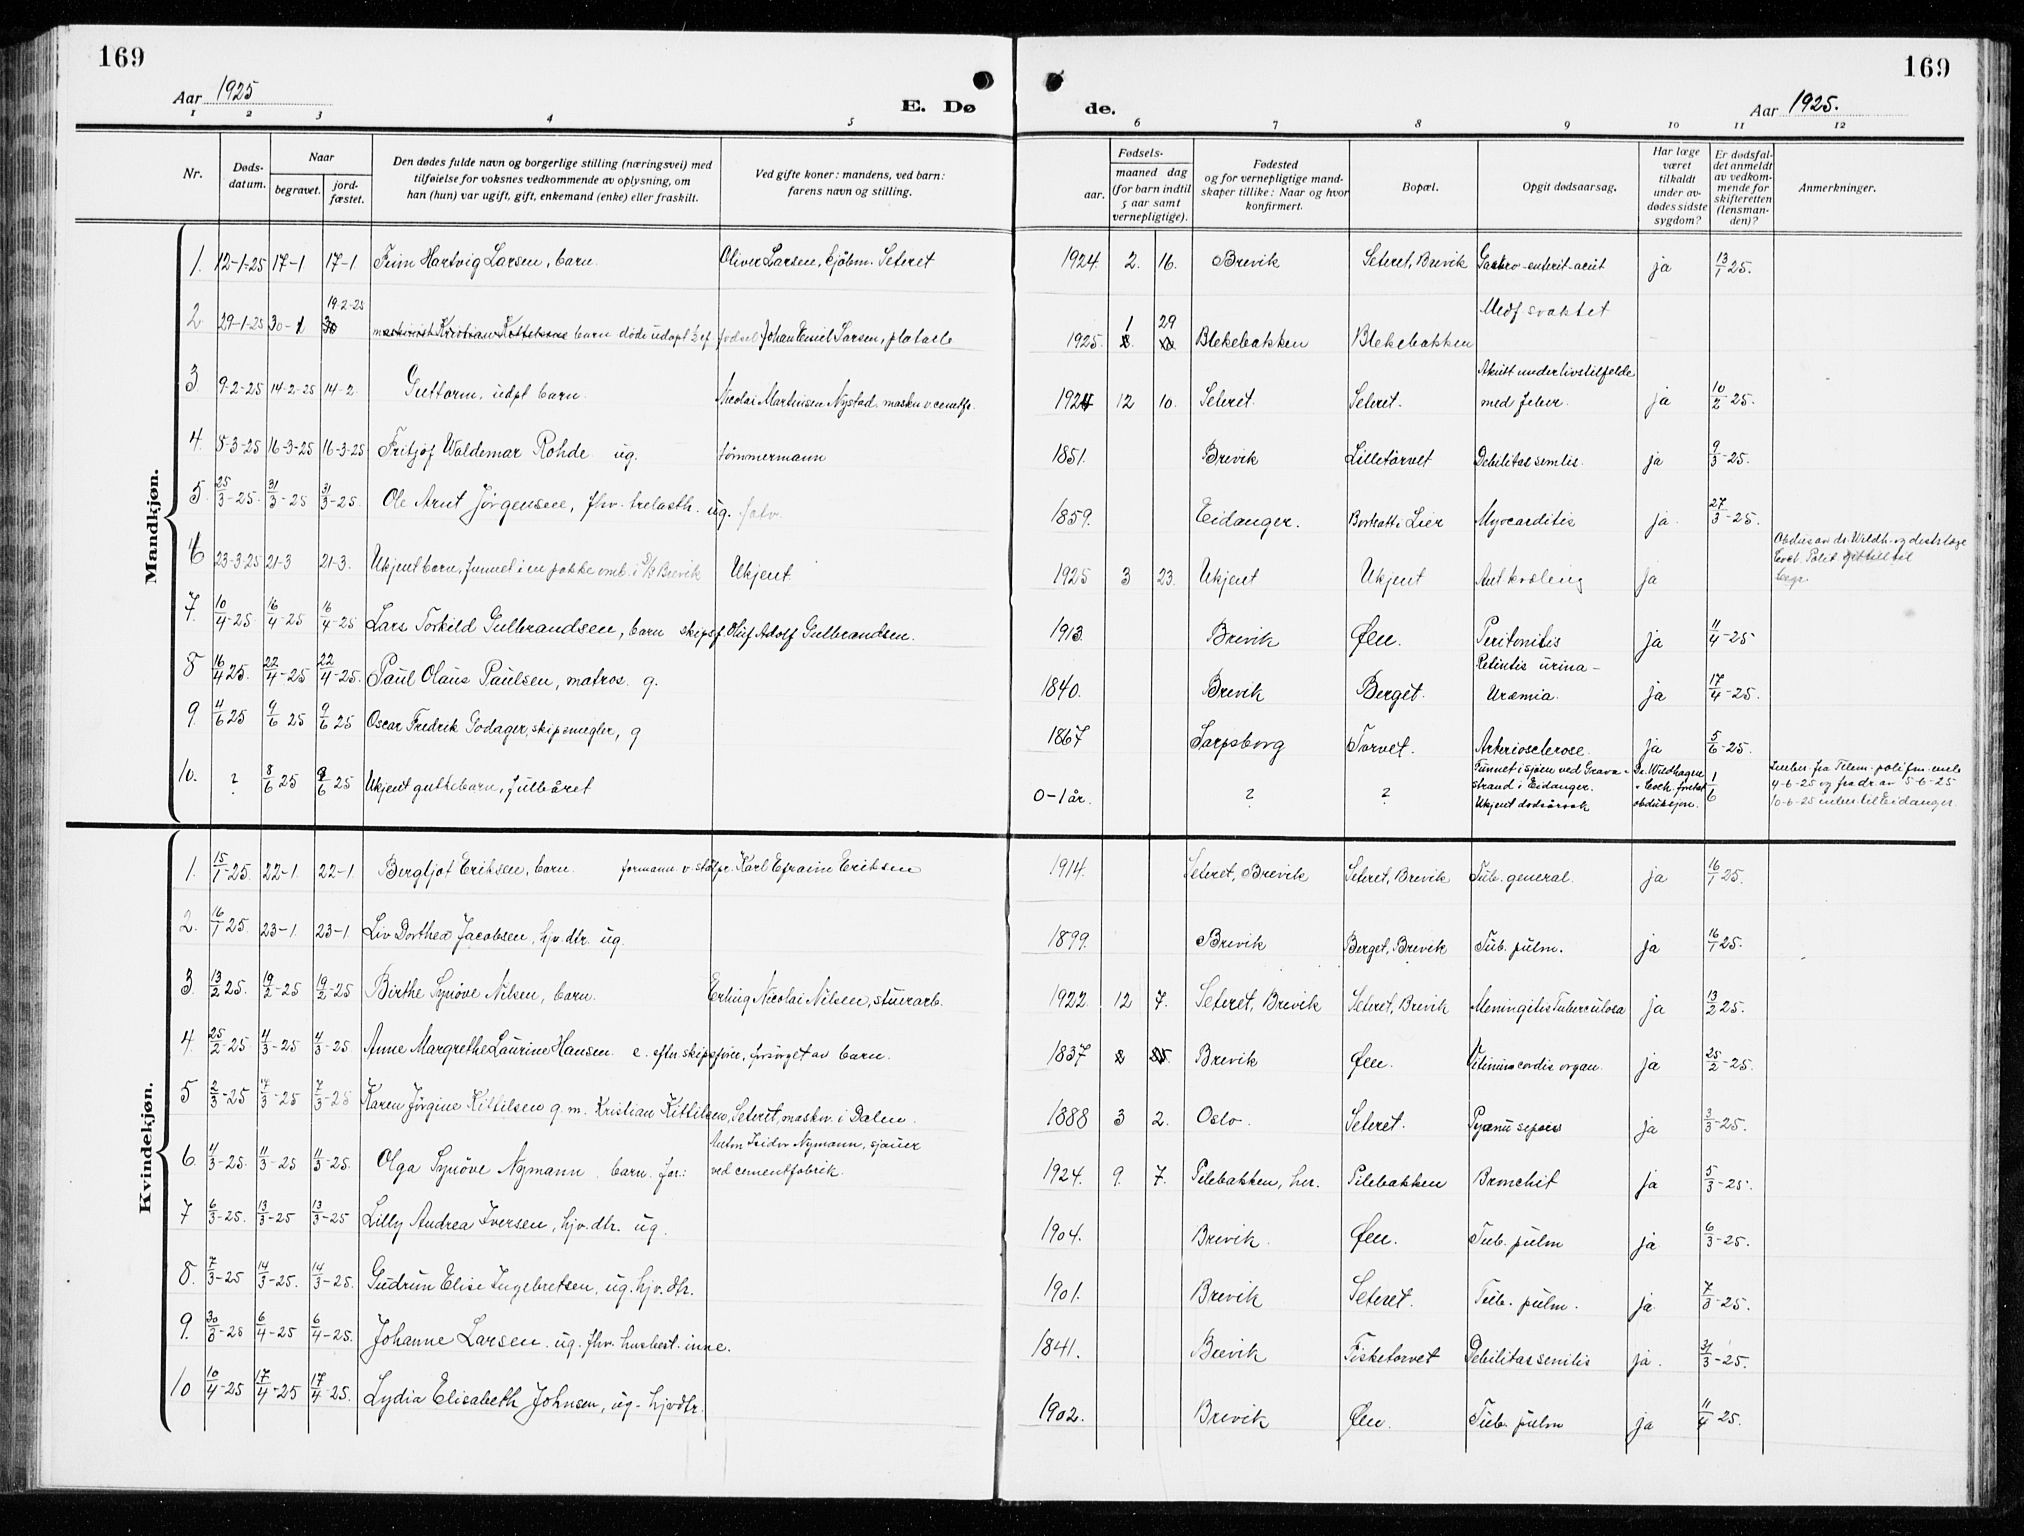 169
169
Aar 1925
E. Dø
de.
Aar 1925.
1 2 3 4 5 6 7 8 9 10 11 12
Nr.
Døds-datum.
Naar
begravet.
jord-fæstet.
Den dødes fulde navn og borgerlige stilling (næringsvei) med
tilføielse for voksnes vedkommende av oplysning, om
han (hun) var ugift, gift, enkemand (enke) eller fraskilt.
Ved gifte koner: mandens, ved barn:
farens navn og stilling.
Fødsels-
aar.
maaned dag
(for barn indtil
5 aar samt
vernepligtige).
Fødested
og for vernepligtige mand-
skaper tillike: Naar og hvor
konfirmert.
Bopæl.
Opgit dødsaarsag.
Har læge
været
tilkaldt
under av-
dødes sidste
sygdom?
Er dødsfal-
det anmeldt
av vedkom-
mende for
skifteretten
(lensman-
den)?
Anmerkninger.
Mandkjøn.
1. 12-1-25 17-1 17-1 Finn Hartvig Larsen, barn. Oliver Larsen, kjøbm. Seteret 1924. 2. 16. Brevik Seteret, Brevik Gastro-enterit-acut ja 13/1 25.
2 29-1-25 30-1 19-2-25 barn døde udøpt Johan Emil Larsen, 1925. 1 29 Blekebakken Blekebakken Medf svakhet
3 9-2-25 14-2-25 14-2 Guttorm, udpt barn. Nicolai Martinsen Nystad. maskn v. 1924 12 10. Seteret. Seteret. Akutt underlivstilfelde
med feber. ja 10/2 25.
4. 5-3-25 16-3-25 16-3-25 Fritjof Waldemar Rohde ug. tømmermann 1851. Brevik Lilletorvet Debilitas senilis. ja 9/3-25.
5. 25/3-25. 31/3-25 31/3-25. Ole Arnt Jørgensen, fhv. trelasth. ug. 1859. Eidanger. Lier Myocarditis ja. 27/3-25.
6 23-3-25 21-3 21-3. Ukjent barn, funnet i en pakke Brevik Ukjent 1925 3 23. Ukjent Ukjent kvæling ja
7. 10/4-25 16/4-25 16/4-25 Lars Torkild Gulbrandsen, barn skipsf. Oluf Adolf Gulbrandsen. 1913. Brevik Øen. Peritonitis ja 11/4-25
8 16/4 25. 22/4-25 22/4-25. Paul Olaus Paulsen, matros. g. 1840. Brevik Berget. urina-
Uræmia. ja 17/4-25.
9. 4/6 25 9/6 25 9/6 25 Oscar Fredrik Godager, skipsmegler, g 1867 Sarpsborg Torvet. Arteriosclerose. ja 5/6-25.
10. ? 8/6 25 9/6 25 Ukjent guttebarn, fullbåret 0-1 år. ? ? Funnet i sjøen ved Grava-
strand i Eidanger.
Ukjent dødsårsak Dr. Wildhagen
obduksjon. 1/6 4-6-25 5-6-25
10-6-25 til Eidanger.
Kvindekjøn.
1. 15/1-25. 22-1. 22-1. Bergljot Eriksen, barn. formann v. Karl Efraim Eriksen 1914. Seteret, Brevik Seteret, Brevik Tub. general. ja 16/1 25.
2. 16/1 25. 23-1. 23-1. Liv Dorthea Jacobsen, hjv. dtr. ug. 1899. Brevik Berget, Brevik Tub. pulm. ja 16/1 25.
3. 13/2 25. 19/2-25 19/2-25 Birthe Synøve Nilsen, barn. Erling Nicolai Nilsen, stuerarb. 1922 12 7. Seteret, Brevik Seteret, Brevik Meningitis Tuberculosa ja 13/2 25.
4. 25/2-25 4/3-25 4/3-25 Anne Margrethe Laurine Hansen e. efter skipsfører, forsørget av barn. 1837 Brevik Øen. Vitium cordis organ. ja 25/2-25.
5 2/3-25 7/3-25 7/3-25 Karen Jørgine Kittilsen g. m. Kristian Kittilsen, Seteret, maskn. i Dalen. 1888 3 2. Oslo. Seteret. ja 3/3-25.
6. 4/3-25. 11/3-25 11/3-25. Olga Synøve Nymann. barn. far: Anton Isidor Nymann, sjauer
ved cementfabrik. 1924. 9. 7. Pilebakken, her. Pilebakken Bronchit ja 5/3-25.
7 6/3-25. 13/3-25 13/3-25 Lilly Andrea Iversen, hjv. dtr. ug. 1904. Brevik. Øen. Tub. pulm ja 6/3-25.
8. 7/3-25 14/3-25. 14/3-25. Gudrun Elise Ingebretsen, ug. hjv. dtr. 1901. Brevik Seteret. Tub. pulm. ja 7/3-25.
9. 30/3-25 6/4-25 6/4-25. Johanne Larsen. ug. fhv. husbest.inne. 1841. Brevik Fisketorvet Debilitas senilis ja. 31/3-25.
10 10/4-25 17/4-25 17/4-25. Lydia Elisabeth Johnsen, ug- hjvdtr. 1902. Brevik Øen. Tub. pulm ja 11/4 25.